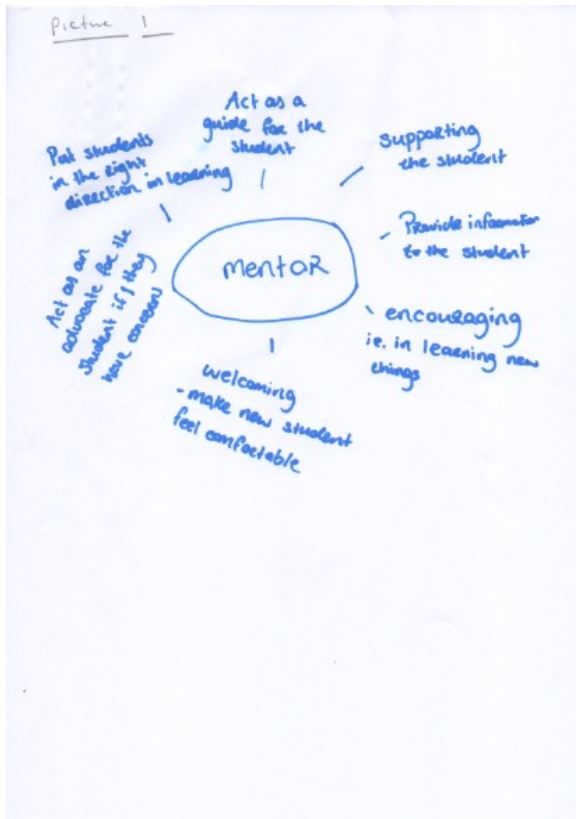 Picture 1
Act as a
guide for the
student
Supporting
the student
Provide information
to the student
encouraging
i.e. in learning new
things
welcoming
- make new student
feel comfortable
Act as an
advocate for the
student if they
have concerns
Put students
in the right
direction in learning
mentor